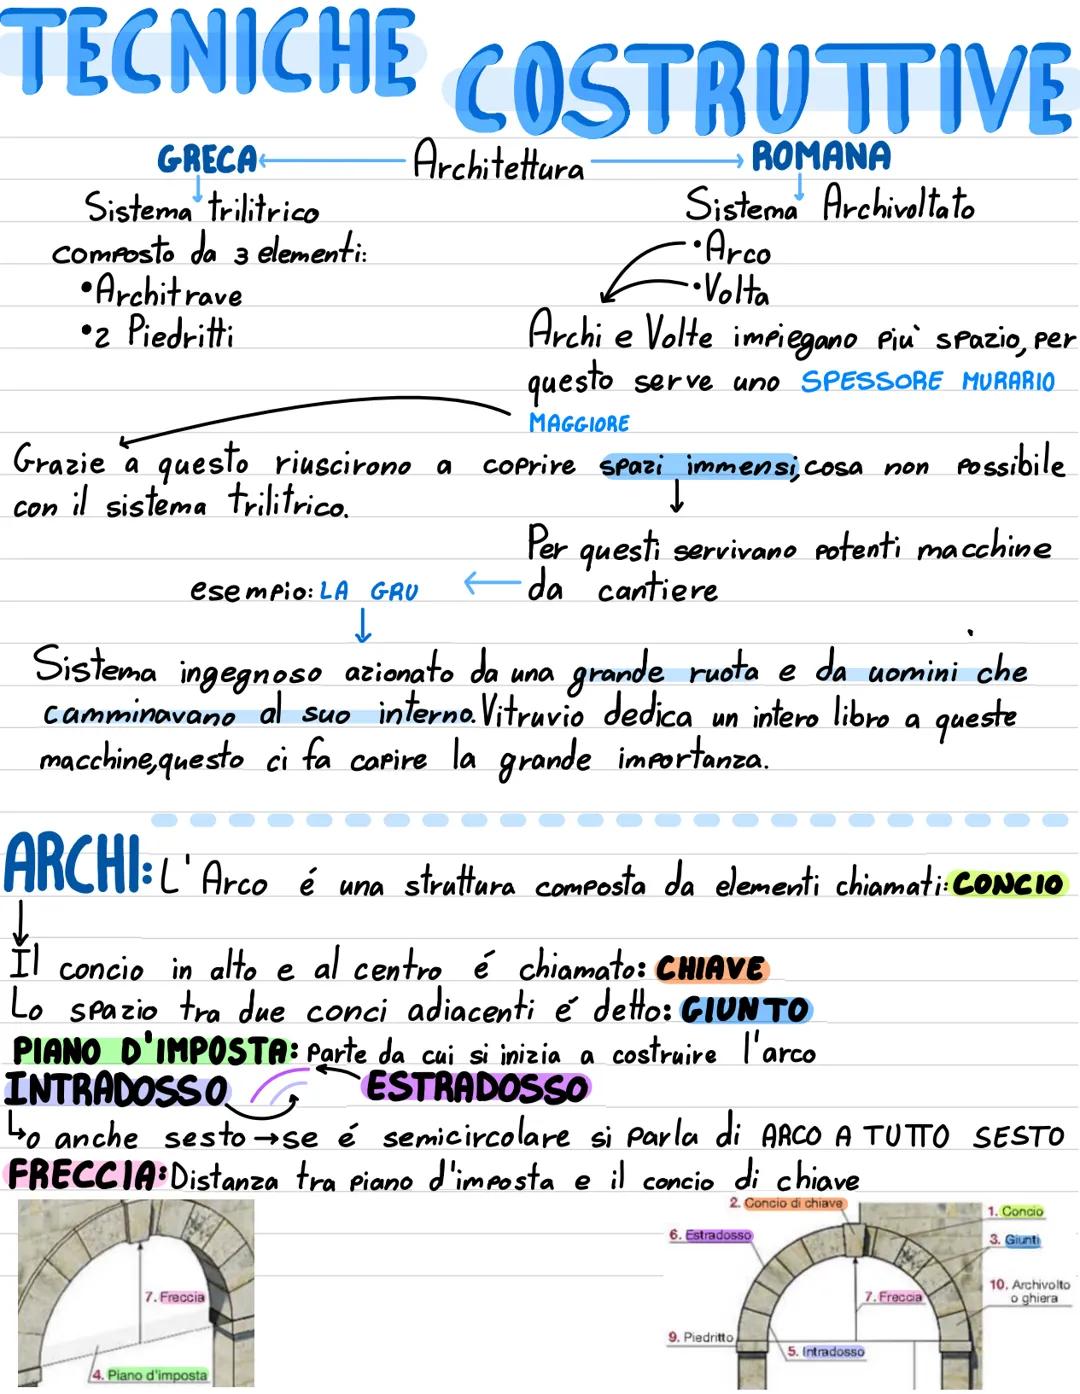 TECNICHE COSTRUTTIVE
GRECA Architettura ROMANA
Sistema trilitrico
composto da 3 elementi:
•Architrave
•2 Piedritti
Sistema Archivoltato
•Arco
•Volta
Archi e Volte impiegano più spazio, per
questo serve uno SPESSORE MURARIO
MAGGIORE
Grazie a questo riuscirono a coprire spazi immensi, cosa non possibile
con il sistema trilitrico.
Per questi servivano potenti macchine
da cantiere
esempio: LA GRU
Sistema ingegnoso azionato da una grande ruota e da uomini che
camminavano al suo interno. Vitruvio dedica un intero libro a queste
macchine, questo ci fa capire la grande importanza.
ARCHI: L'Arco é una struttura composta da elementi chiamati: CONCIO
Il concio in alto e al centro é chiamato: CHIAVE
Lo spazio tra due conci adiacenti é detto: GIUNTO
PIANO D'IMPOSTA: Parte da cui si inizia a costruire l'arco
INTRADOSSO ESTRADOSSO
o anche sesto → se é semicircolare si parla di ARCO A TUTTO SESTO
FRECCIA: Distanza tra piano d'imposta e il concio di chiave
7. Freccia
4. Piano d'imposta
2. Concio di chiave
1. Concio
6. Estradosso
3. Giunti
10. Archivolto
o ghiera
7. Freccia
9. Piedritto
5. Intradosso